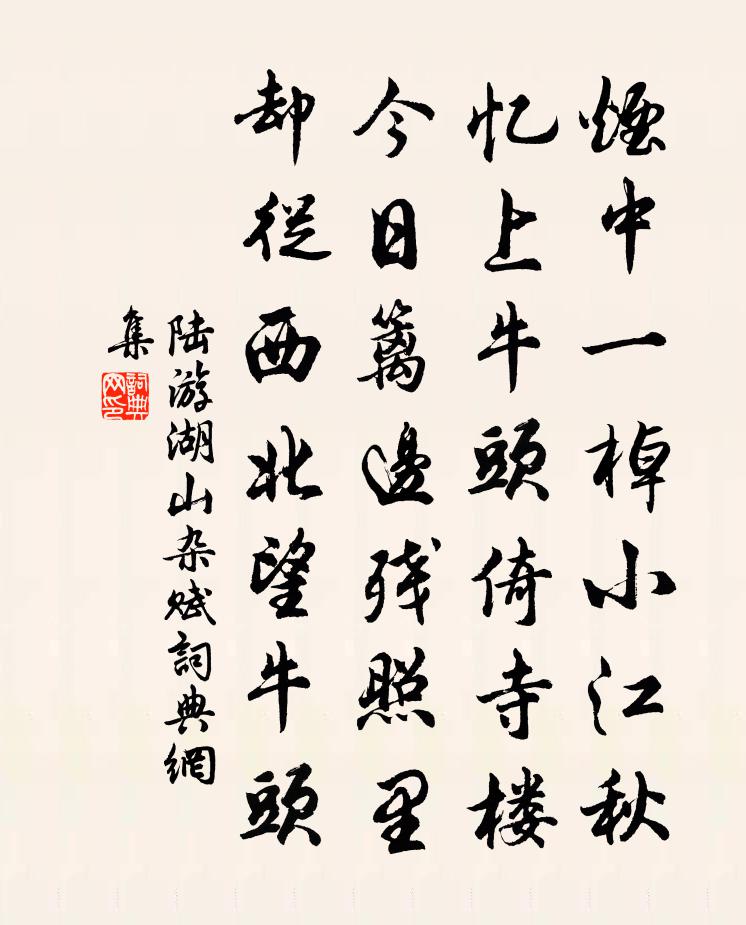 煙中一棹小江秋
忆上牛頭倚寺楼
今日篱邊残照里
却從西北望牛頭
陆游湖山杂赋詞典網
集
詞典网印